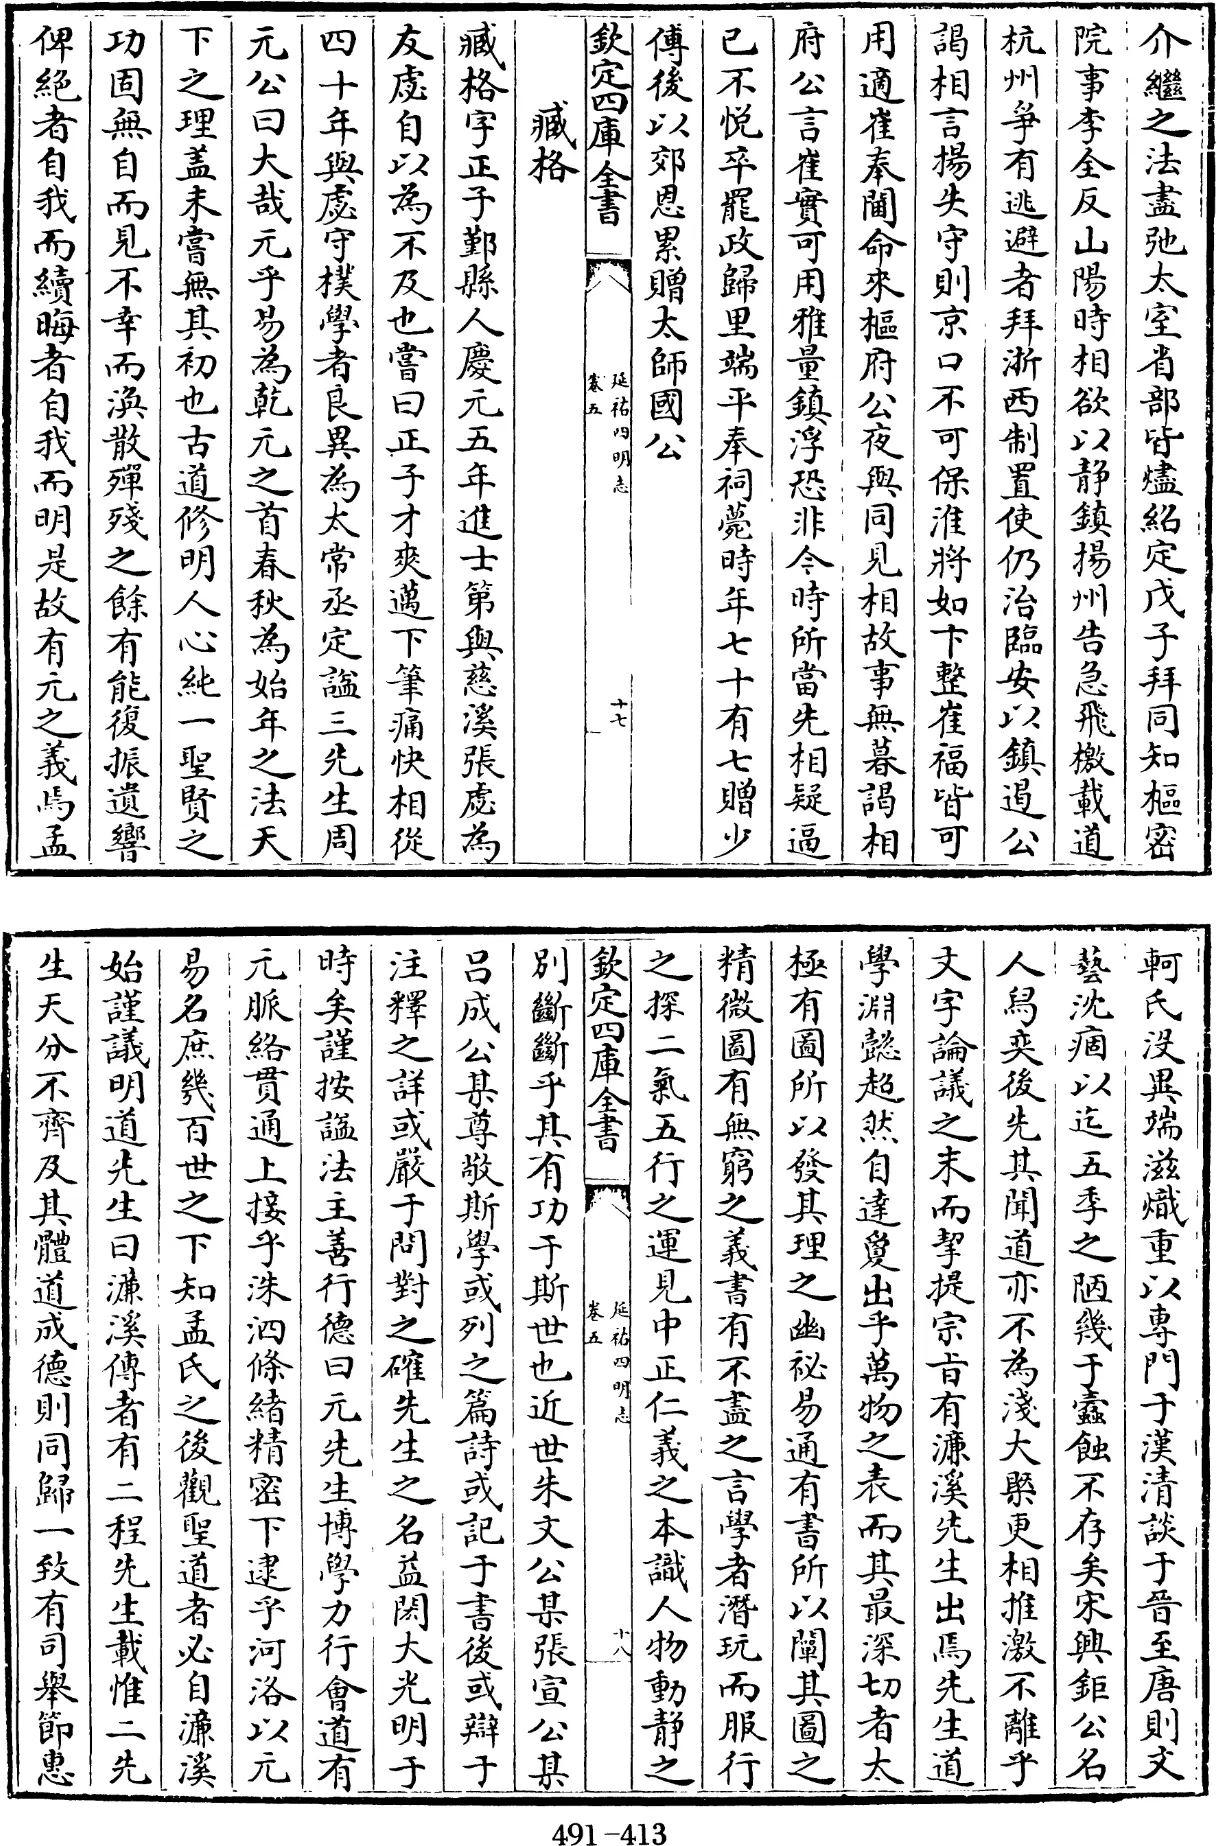 介繼之法盡弛太室省部皆燼紹定戊子拜同知樞密
院事李全反山陽時相欲以静鎮揚州告急飛檄載道
杭州爭有逃避者拜浙西制置使仍治臨安以鎮遏公
謁相言揚失守則京口不可保淮將如卞整崔福皆可
用適崔奉閫命來樞府公夜與同見相故事無暮謁相
府公言崔實可用雅量鎮浮恐非今時所當先相疑逼
已不悦卒罷政歸里端平奉祠薨時年七十有七贈少
傅後以郊恩累贈太師國公
欽定四庫全書
延祐四明志
卷五
十七
臧格
臧格字正子鄞縣人慶元五年進士第與慈溪張虙為
友虙自以為不及也嘗曰正子才爽邁下筆痛快相從
四十年與虙守樸學者良異為太常丞定諡三先生周
元公曰大哉元乎易為乾元之首春秋為始年之法天
下之理盖未嘗無其初也古道修明人心純一聖賢之
功固無自而見不幸而渙散殫殘之餘有能復振遺響
俾絶者自我而續晦者自我而明是故有元之義焉孟
軻氏没異端滋熾重以專門于漢清談于晉至唐則文
藝沈痼以迄五季之陋幾于蠧蝕不存矣宋興鉅公名
人舄奕後先其聞道亦不為淺大槩更相推激不離乎
文字論議之末而挈提宗㫖有濂溪先生出焉先生道
學淵懿超然自達夐出乎萬物之表而其最深切者太
極有圖所以發其理之幽祕易通有書所以闡其圖之
精微圖有無窮之義書有不盡之言學者潛玩而服行
之探二氣五行之運見中正仁義之本識人物動静之
欽定四庫全書
延祐四明志
卷五
十八
别斷斷乎其有功于斯世也近世朱文公某張宣公某
吕成公某尊敬斯學或列之篇詩或記于書後或辯于
注釋之詳或嚴于問對之確先生之名益閎大光明于
時矣謹按諡法主善行德曰元先生博學力行會道有
元脈絡貫通上接乎洙泗條緒精密下逮乎河洛以元
易名庶幾百世之下知孟氏之後觀聖道者必自濂溪
始謹議明道先生曰濂溪傳者有二程先生載惟二先
生天分不齊及其體道成德則同歸一致有司舉節惠
491-413